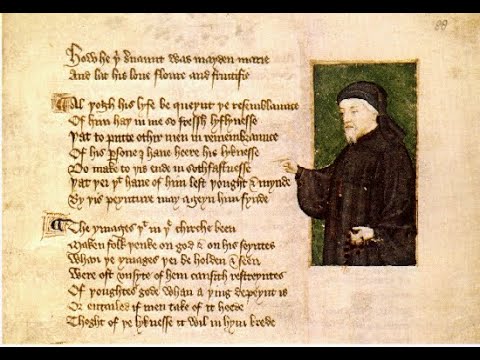 How he yͥ seruaunt was mayden marie
And lat his loue floure and fructifie
Al þogh his lyfe be queynt þe resemblaunce
Of him haþ in me so fressh lyflynesse
Þat to putte othir men in remembraunce
Of his persone I haue heere his lyknesse
Do make to þis ende in sothfastnesse
Þat þei þᵗ haue of him left þought & mynde
By þis peynture may ageyn him fynde
The ymages þᵗ in þe chirche been
Maken folk þenke on god & on his seyntes
Whan þe ymages þei be holden & seen
Were oft vnsyte of hem causith restreyntes
Of þoughtes gode whan a þing depeynt is
Or entailed if men take of it heede
Thoght of þe lyknesse it wil in hym brede